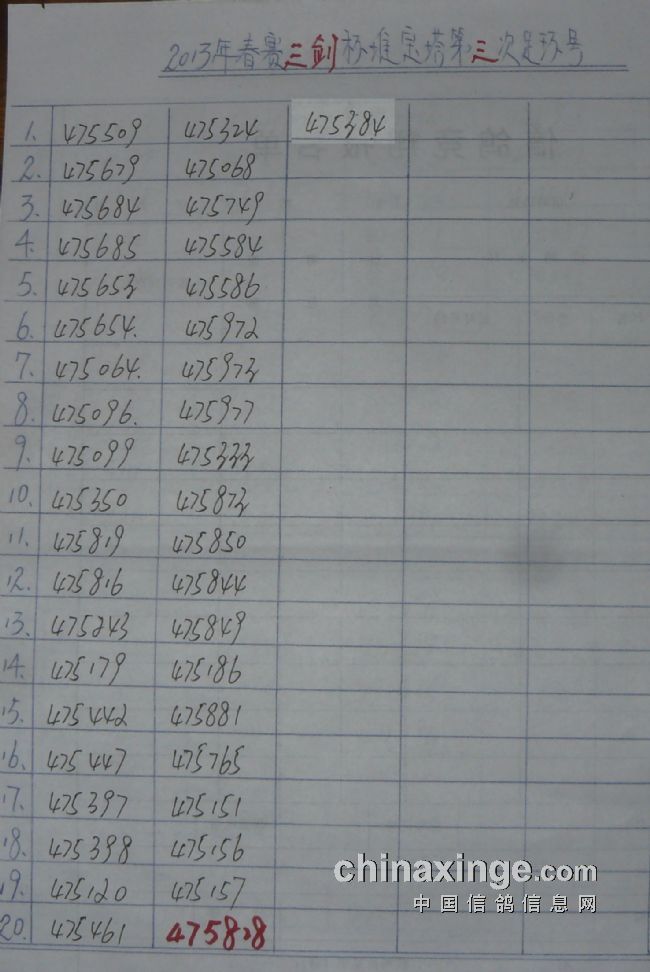 2013年春赛三剑标准定塔第三次足环号
1. 475509 475324 475384
2. 475679 475068
3. 475684 475749
4. 475685 475584
5. 475653 475586
6. 475654. 475972
7. 475064. 475973
8. 475096. 475977
9. 475099 475333
10. 475350 475873
11. 475819 475850
12. 475816 475844
13. 475243 475849
14. 475179 475186
15. 475442 475881
16. 475447 475765
17. 475397 475151
18. 475398 475156
19. 475120 475157
20. 475461 475828
chinaxinge.com
中国信鸽信息网